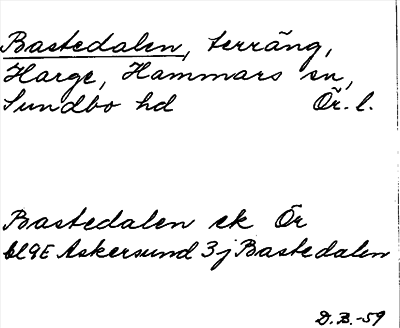 Bastedalen, terräng,
Harge, Hammars sn,
Sundbo hd Ör. l.
Bastedalen ek Ör
bl 9E Askersund 3j Bastedalen
D.B.-59